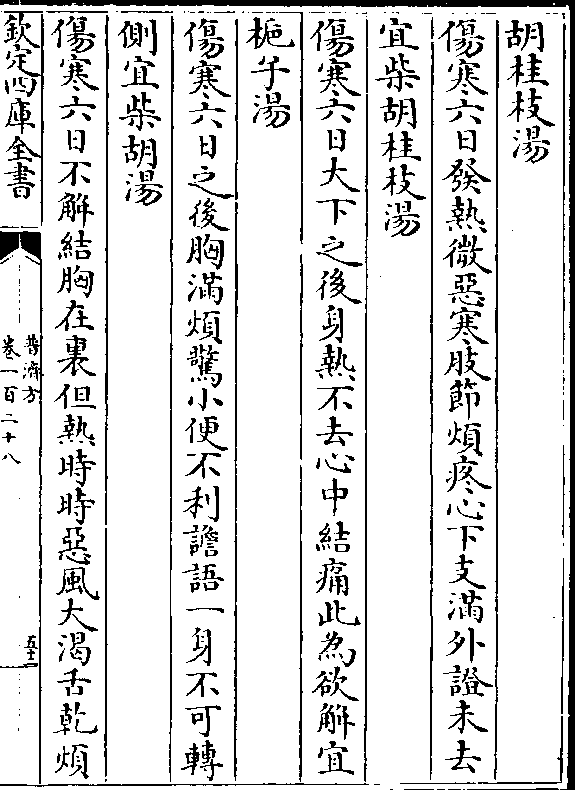 胡桂枝湯
傷寒六日發熱微惡寒肢節煩疼心下支滿外證未去
宜柴胡桂枝湯
傷寒六日大下之後身熱不去心中結痛此為欲解宜
梔子湯
傷寒六日之後胸滿煩驚小便不利譫語一身不可轉
側宜柴胡湯
傷寒六日不解結胸在裏但熱時時惡風大渴舌乾煩
欽定四庫全書
普濟方
卷一百二十八